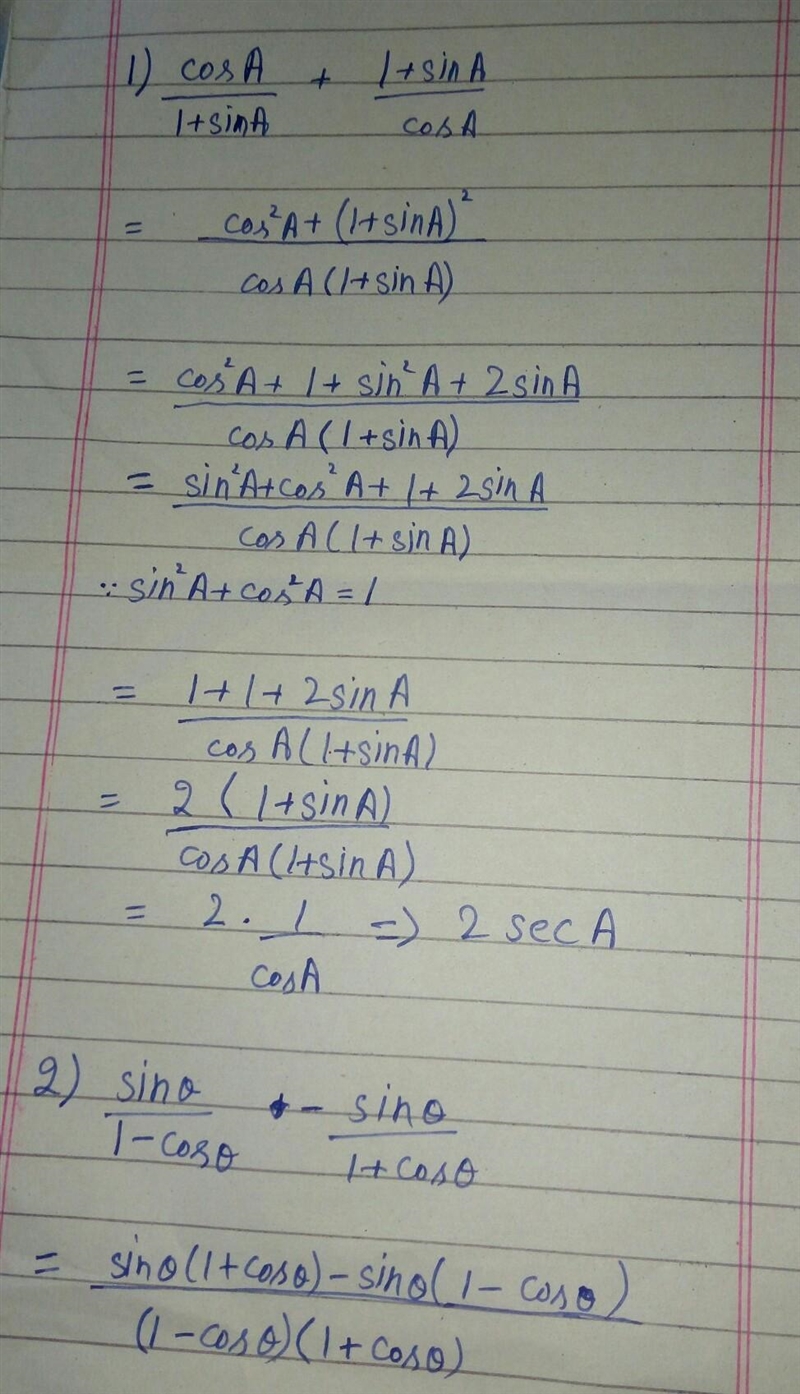 1) cosA/1+sinA + 1+sinA/cosA
= cos²A+(1+sinA)²/cosA(1+sinA)
= cos²A+1+sin²A+2sinA/cosA(1+sinA)
= sin²A+cos²A+1+2sinA/cosA(1+sinA)
∵ sin²A+cos²A=1
= 1+1+2sinA/cosA(1+sinA)
= 2(1+sinA)/cosA(1+sinA)
= 2·1/cosA => 2secA
2) sinθ/1-cosθ - sinθ/1+cosθ
= sinθ(1+cosθ)-sinθ(1-cosθ)/(1-cosθ)(1+cosθ)